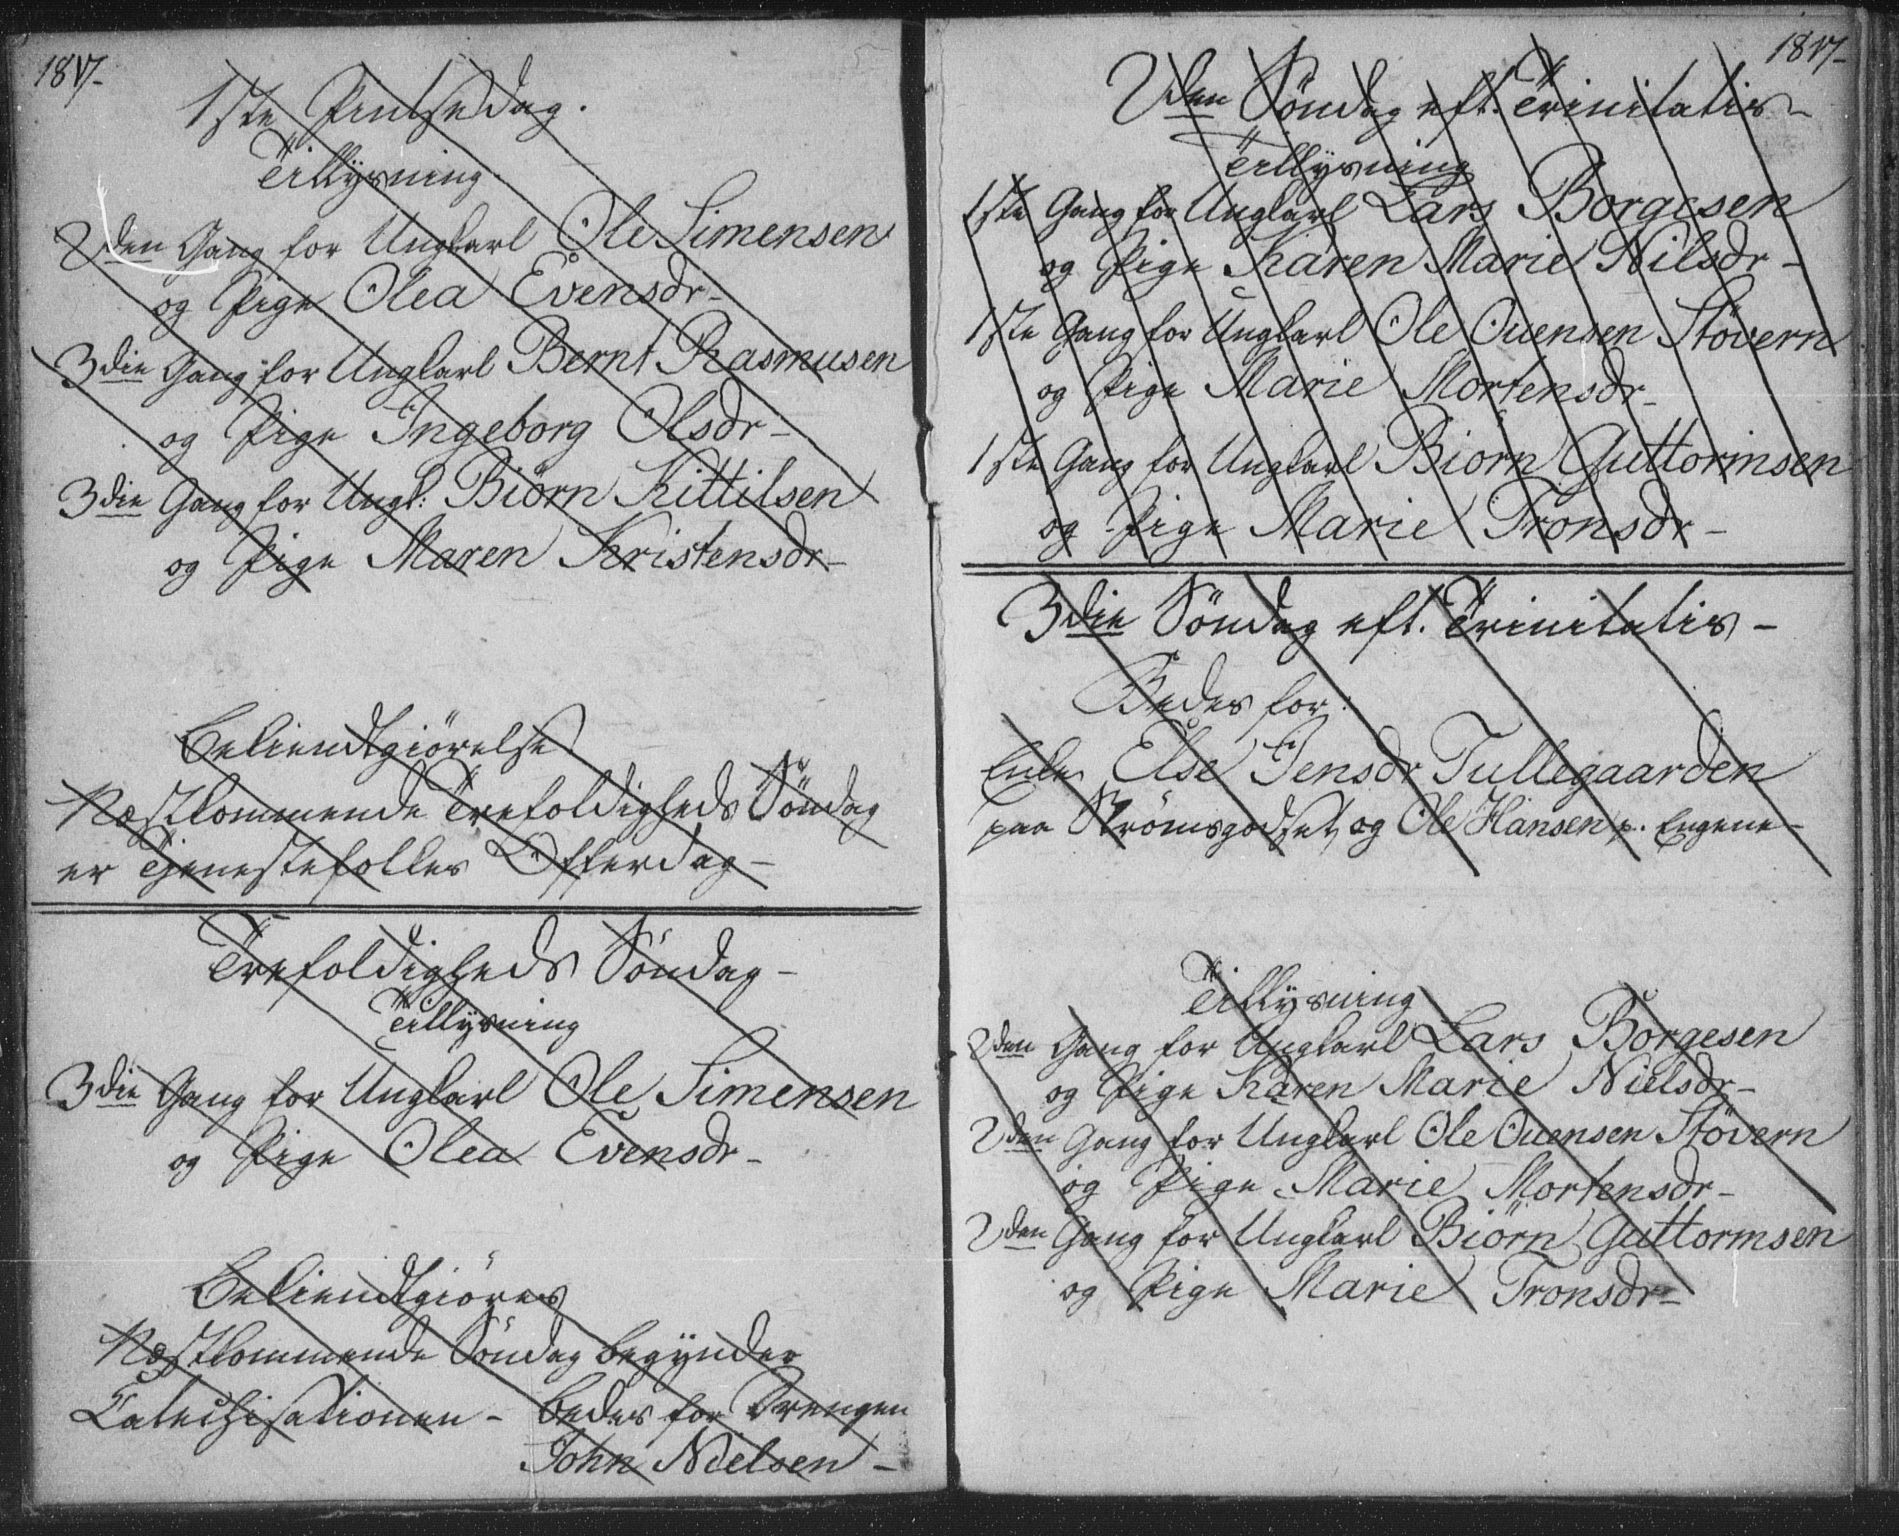 1817
1ste Pintsedag.
Tillysning
2den Gang for Ungkarl Ole Simensen
og Pige Olea Evensdr-
3die Gang for Ungkarl Bernt Rasmusen
og Pige Ingeborg Olsdr-
3die Gang for Ungk: Biörn Kittilsen
og Pige Maren Kristensdr-
Bekiendtgiörelse
Næstkommende Trefoldigheds Söndag
er Tjenestefolkes Offerdag-
Trefoldigheds Söndag-
Tillysning
3die Gang for Ungkarl Ole Simensen
og Pige Olea Evensdr-
Bekiendtgiöres
Næstkommende Söndag begynder
Catechisationen- bedes for Drengen
John Nielsen-
1817
2den Söndag eft. Trinitatis-
Tillysning
1ste Gang for Ungkarl Lars Borgesen
og Pige Karen Marie Nilsdr-
1ste Gang for Ungkarl Ole Ouensen Stövern
og Pige Marie Mortensdr-
1ste Gang for Ungkarl Biörn Guttormsen
og Pige Marie Tronsdr-
3die Söndag eft. Trinitatis-
Bedes for:
Enke Else Jensdr Tullegaarden
paa Strömsgodset, og Ole Hansen p. Engene-
Tillysning
2den Gang for Ungkarl Lars Borgesen
og Pige Karen Marie Nielsdr-
2den Gang for Ungkarl Ole Ouensen Stövern
og Pige Marie Mortensdr-
2den Gang for Ungkarl Biörn Guttormsen
og Pige Marie Tronsdr-